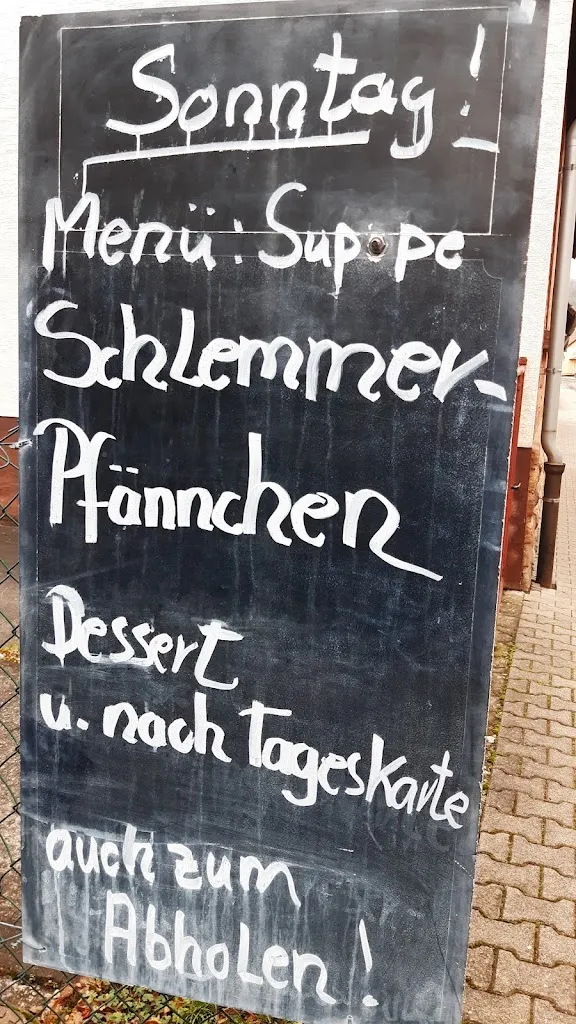 Sonntag!
Menü: Suppe
Schlemmer-
Pfännchen
Dessert
u. nach Tageskarte
auch zum
Abholen!